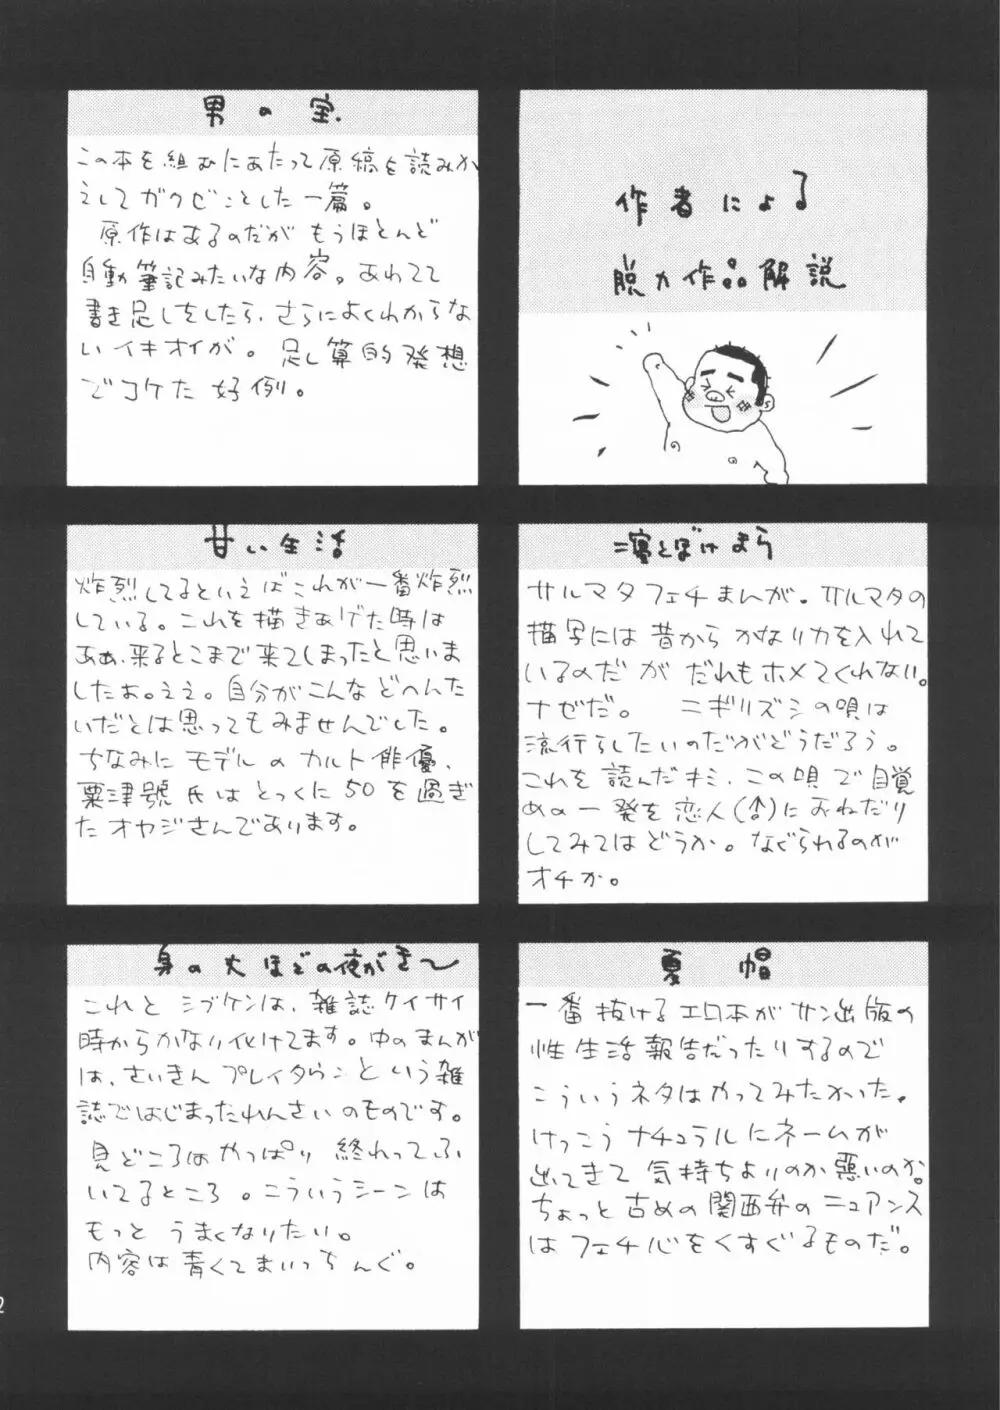 作者による
脱力作品解説
男の宝
この本を組むにあたって原稿を読みか
えしてガクゼンとした一篇。
原作はあるのだが もうほとんど
自動筆記みたいな内容。あわてて
書き足しをしたら、さらによくわからな
いイキオイが。足し算的発想
でコケた好例。
サルマタフェチまんが。サルマタの
描写には昔からかなり力を入れて
いるのだが だれもホメてくれない。
ナゼだ。 ニギリズシの唄は
流行らしたいのだがどうだろう。
これを読んだキミ、この唄で目覚
めの一発を恋人(♂)におねだり
してみてはどうか。なぐられるのが
オチか。
甘い生活
炸烈してるといえばこれが一番炸烈
している。これを描きあげた時は
ああ、来るとこまで来てしまったと思いま
したお。ええ。自分がこんなどへんた
いだとは思ってもみませんでした。
ちなみにモデルのカルト俳優、
粟津號氏はとっくに50を過ぎ
たオヤジさんであります。
夏 帽
一番抜けるエロ本がサン出版の
性生活報告だったりするので
こういうネタはやってみたかった。
けっこうナチュラルにネームが
出てきて気持ちよりのか悪いのか。
ちょっと古めの関西弁のニュアンス
はフェチ心をくすぐるものだ。
身の丈ほどの夜がき〜
これとシブケンは、雑誌ケイサイ
時からかなり化けてます。中のまんが
は、さいきんプレイタウンという雑
誌ではじまったれんさいのものです。
見どころはやっぱり終わってふ
いてるところ。こういうシーンは
もっとうまくなりたい。
内容は青くてまいっちんぐ。
2